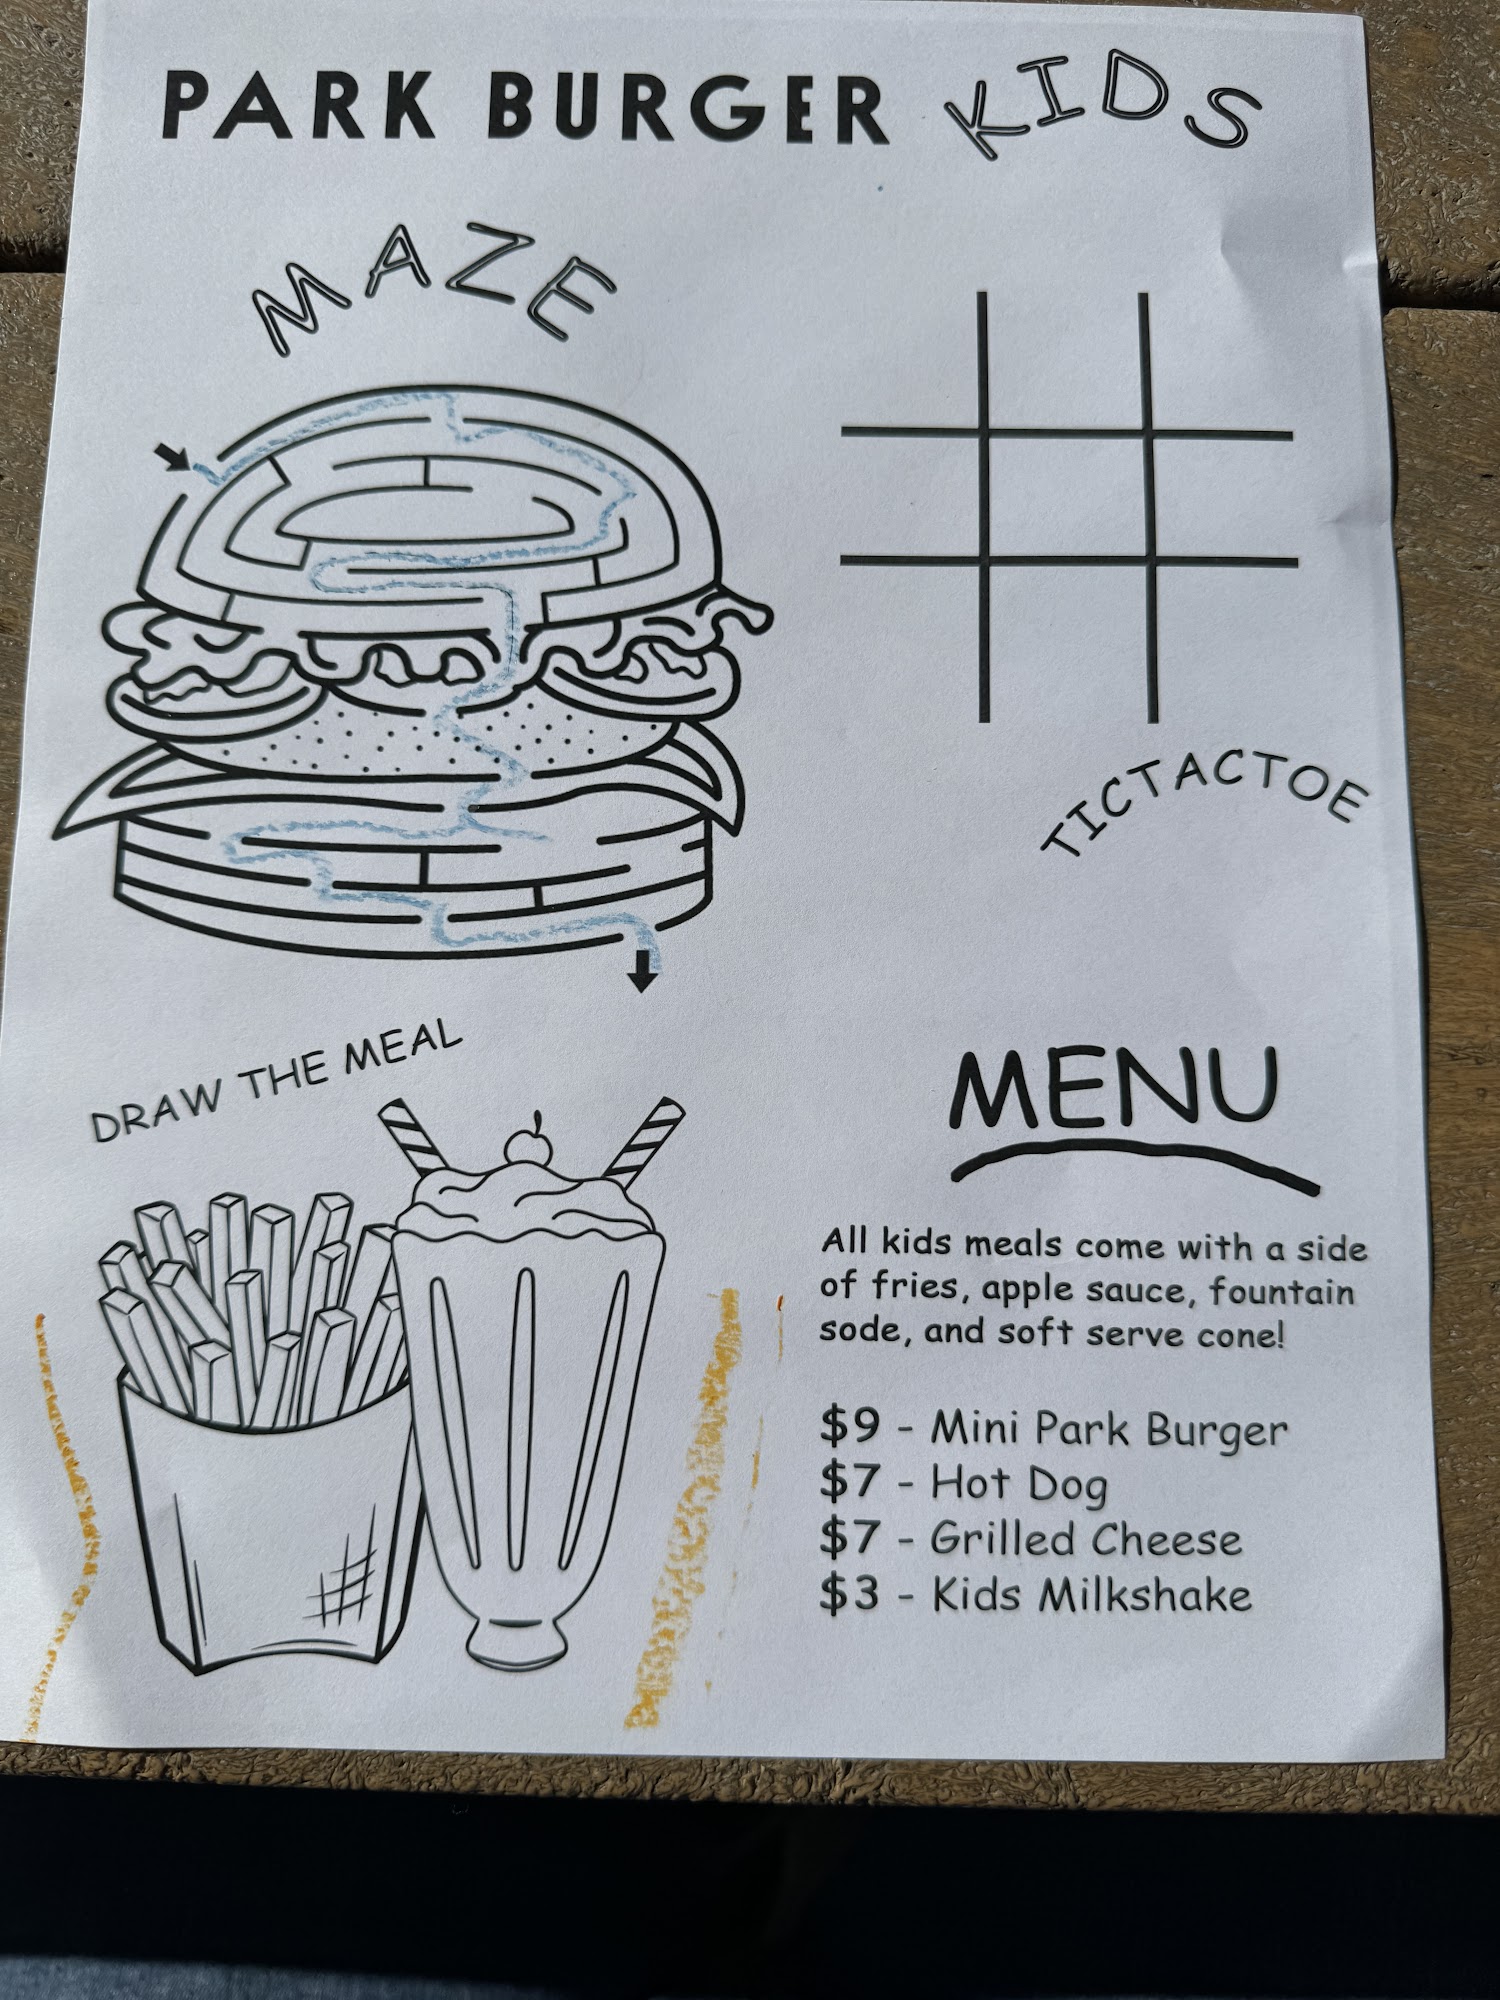 PARK BURGER KIDS
MAZE
TICTACTOE
DRAW THE MEAL
MENU
All kids meals come with a side
of fries, apple sauce, fountain
sode, and soft serve cone!
$9 - Mini Park Burger
$7 - Hot Dog
$7 - Grilled Cheese
$3 - Kids Milkshake